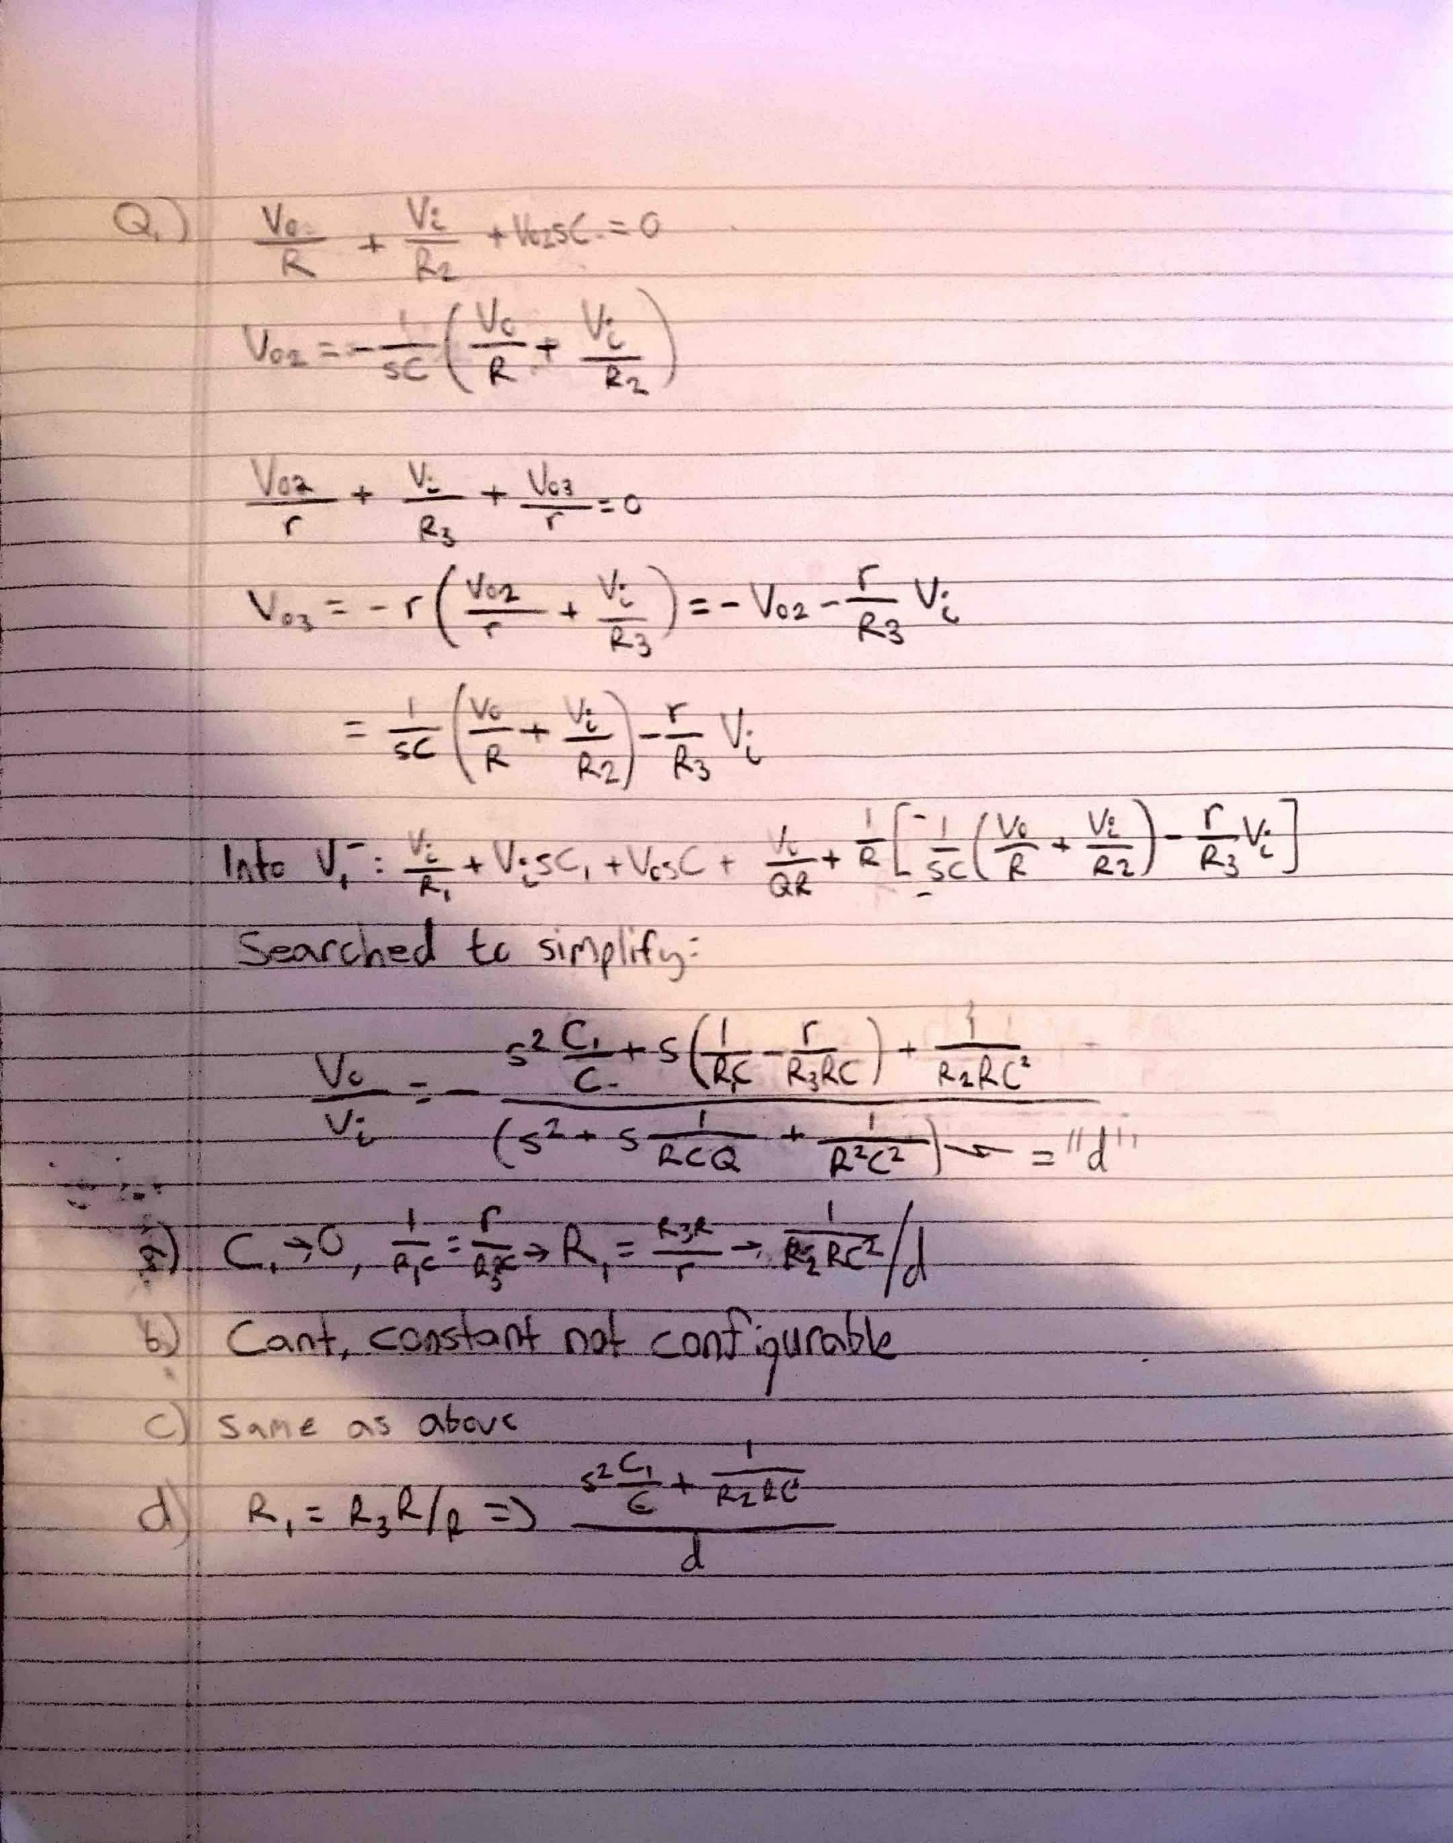 Q1) Vo/R + Vi/R2 + Vo2sC = 0
Vo2 = -1/sC (Vo/R + Vi/R2)
Vo2/r + Vi/R3 + Vo3/r = 0
Vo3 = -r (Vo2/r + Vi/R3) = -Vo2 - r/R3 Vi
= 1/sC (Vo/R + Vi/R2) - r/R3 Vi
Into V1⁻: Vi/R1 + VisC1 + VosC + Vo/QR + 1/R [-1/sC (Vo/R + Vi/R2) - r/R3 Vi]
Searched to simplify:
Vo/Vi = - (s² C1/C + s(1/R1C - r/R3RC) + 1/R2RC²) / (s² + s 1/RCQ + 1/R²C²) = "d"
a) C1→0, 1/R1C = r/R3RC → R1 = R3R/r → 1/R2RC² / d
b) Cant, constant not configurable
c) same as above
d) R1 = R3R/R ⇒ (s² C1/C + 1/R2RC) / d